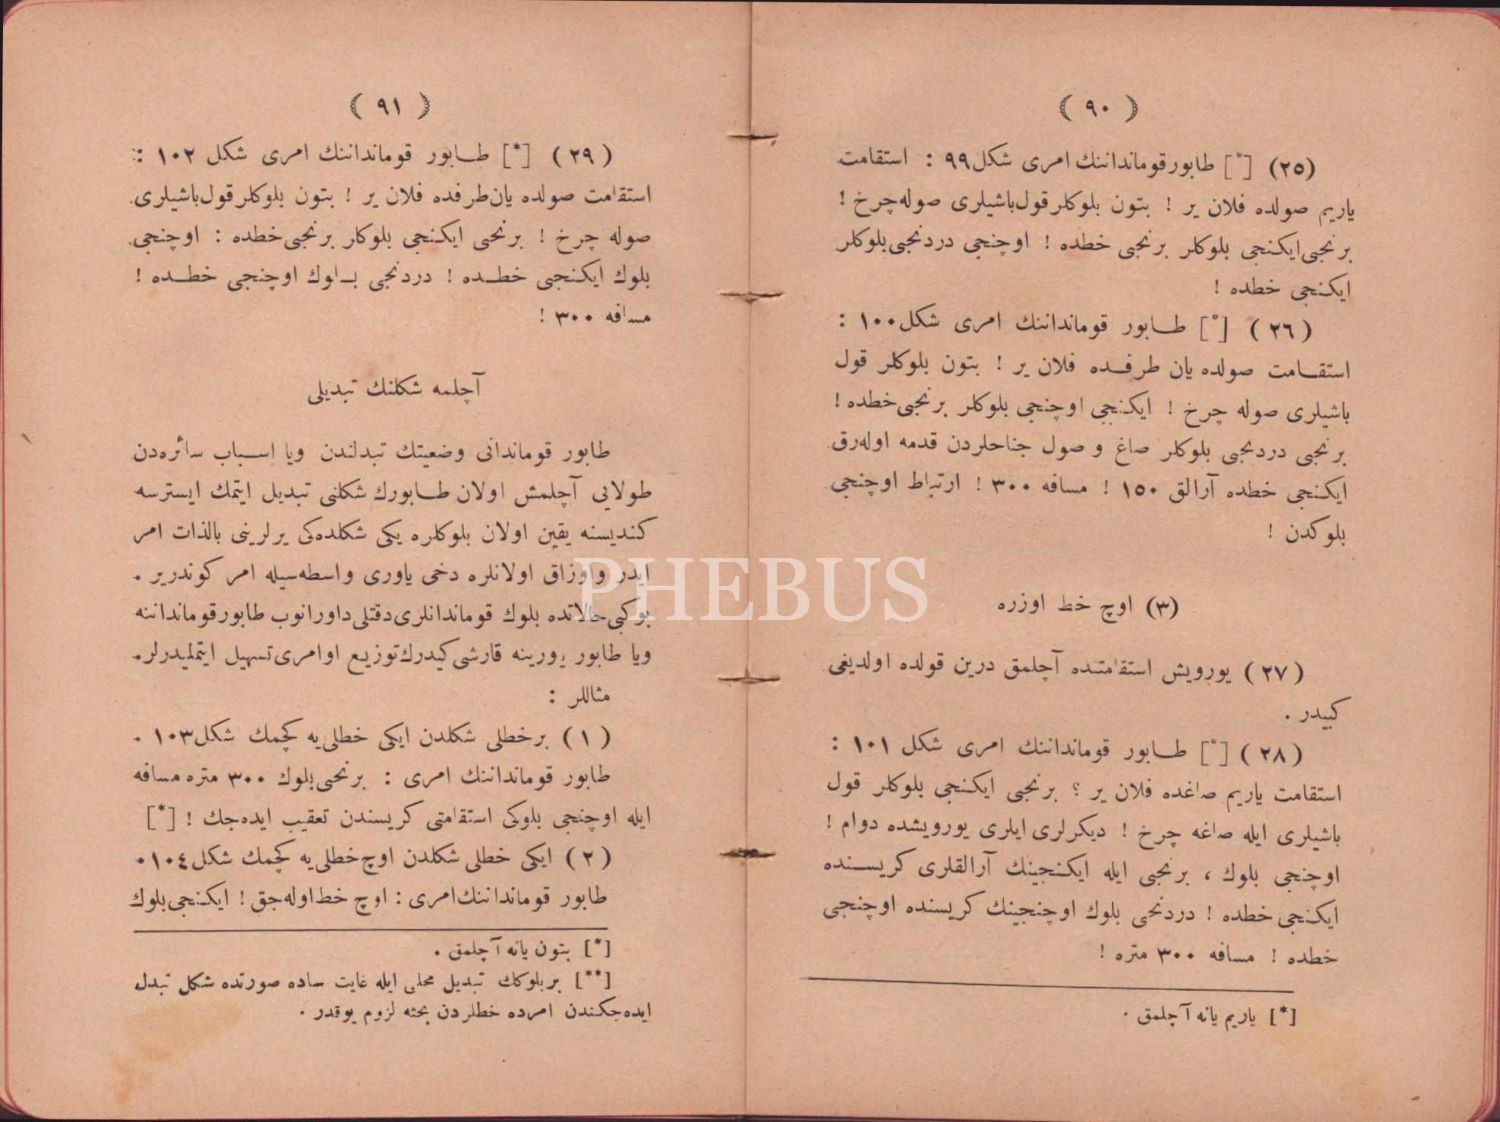 ( ٩٠ )
(٢٥) [*] طابور قوماندانننك امری شكل ٩٩ : استقامت
یاریم صولده فلان یر ! بتون بلوكلر قول باشیلری صوله چرخ !
برنجی ایكنجی بلوكلر برنجی خطده ! اوچنجی دردنجی بلوكلر
ایكنجی خطده !
(٢٦) [*] طابور قوماندانننك امری شكل ١٠٠ :
استقامت صولده یان طرفده فلان یر ! بتون بلوكلر قول
باشیلری صوله چرخ ! ایكنجی اوچنجی بلوكلر برنجی خطده !
برنجی دردنجی بلوكلر صاغ و صول جناحلردن قدمه اوله‌رق
ایكنجی خطده آرالق ١٥٠ ! مسافه ٣٠٠ ! ارتباط اوچنجی
بلوكدن !
(٣) اوچ خط اوزره
(٢٧) یورویش استقامتنده آچلمق درین قولده اولدیغی
كبیدر .
(٢٨) [*] طابور قوماندانننك امری شكل ١٠١ :
استقامت یاریم صاغده فلان یر ؟ برنجی ایكنجی بلوكلر قول
باشیلری ایله صاغه چرخ ! دیكرلری ایلری یورویشده دوام !
اوچنجی بلوك ، برنجی ایله ایكنجینك آرالقلری كریسنده
ایكنجی خطده ! دردنجی بلوك اوچنجینك كریسنده اوچنجی
خطده ! مسافه ٣٠٠ متره !
[*] یاریم یانه آچلمق .
( ٩١ )
(٢٩) [*] طابور قوماندانننك امری شكل ١٠٢ :
استقامت صولده یان طرفده فلان یر ! بتون بلوكلر قول باشیلری
صوله چرخ ! برنجی ایكنجی بلوكلر برنجی خطده : اوچنجی
بلوك ایكنجی خطده ! دردنجی بلوك اوچنجی خطده !
مسافه ٣٠٠ !
آچلمه شكلنك تبدیلی
طابور قوماندانی وضعیتك تبدلندن ویا اسباب سائره‌دن
طولایی آچلمش اولان طابورك شكلنی تبدیل ایتمك ایسترسه
كندیسنه یقین اولان بلوكلره یكی شكلده‌كی یرلرینی بالذات امر
ایدر واوزاق اولانلره دخی یاوری واسطه‌سیله امر كوندریر .
بوكبی حالاتده بلوك قوماندانلری دقتلی داورانوب طابور قوماندانننه
ویا طابور یاورینه قارشی كیدرك توزیع اوامری تسهیل ایتملیدرلر .
مثاللر :
(١) برخطلی شكلدن ایكی خطلی یه كچمك شكل ١٠٣ .
طابور قوماندانننك امری : برنجی بلوك ٣٠٠ متره مسافه
ایله اوچنجی بلوكی استقامتی كریسندن تعقیب ایده‌جك ! [*]
(٢) ایكی خطلی شكلدن اوچ خطلی یه كچمك شكل ١٠٤.
طابور قوماندانننك امری : اوچ خط اوله‌جق ! ایكنجی بلوك
[*] بتون یانه آچلمق .
[**] بربلوكك تبدیل محلی ایله غایت ساده صورتده شكل تبدل
ایده‌جكندن امرده خطلردن بحثه لزوم یوقدر .
PHEBUS